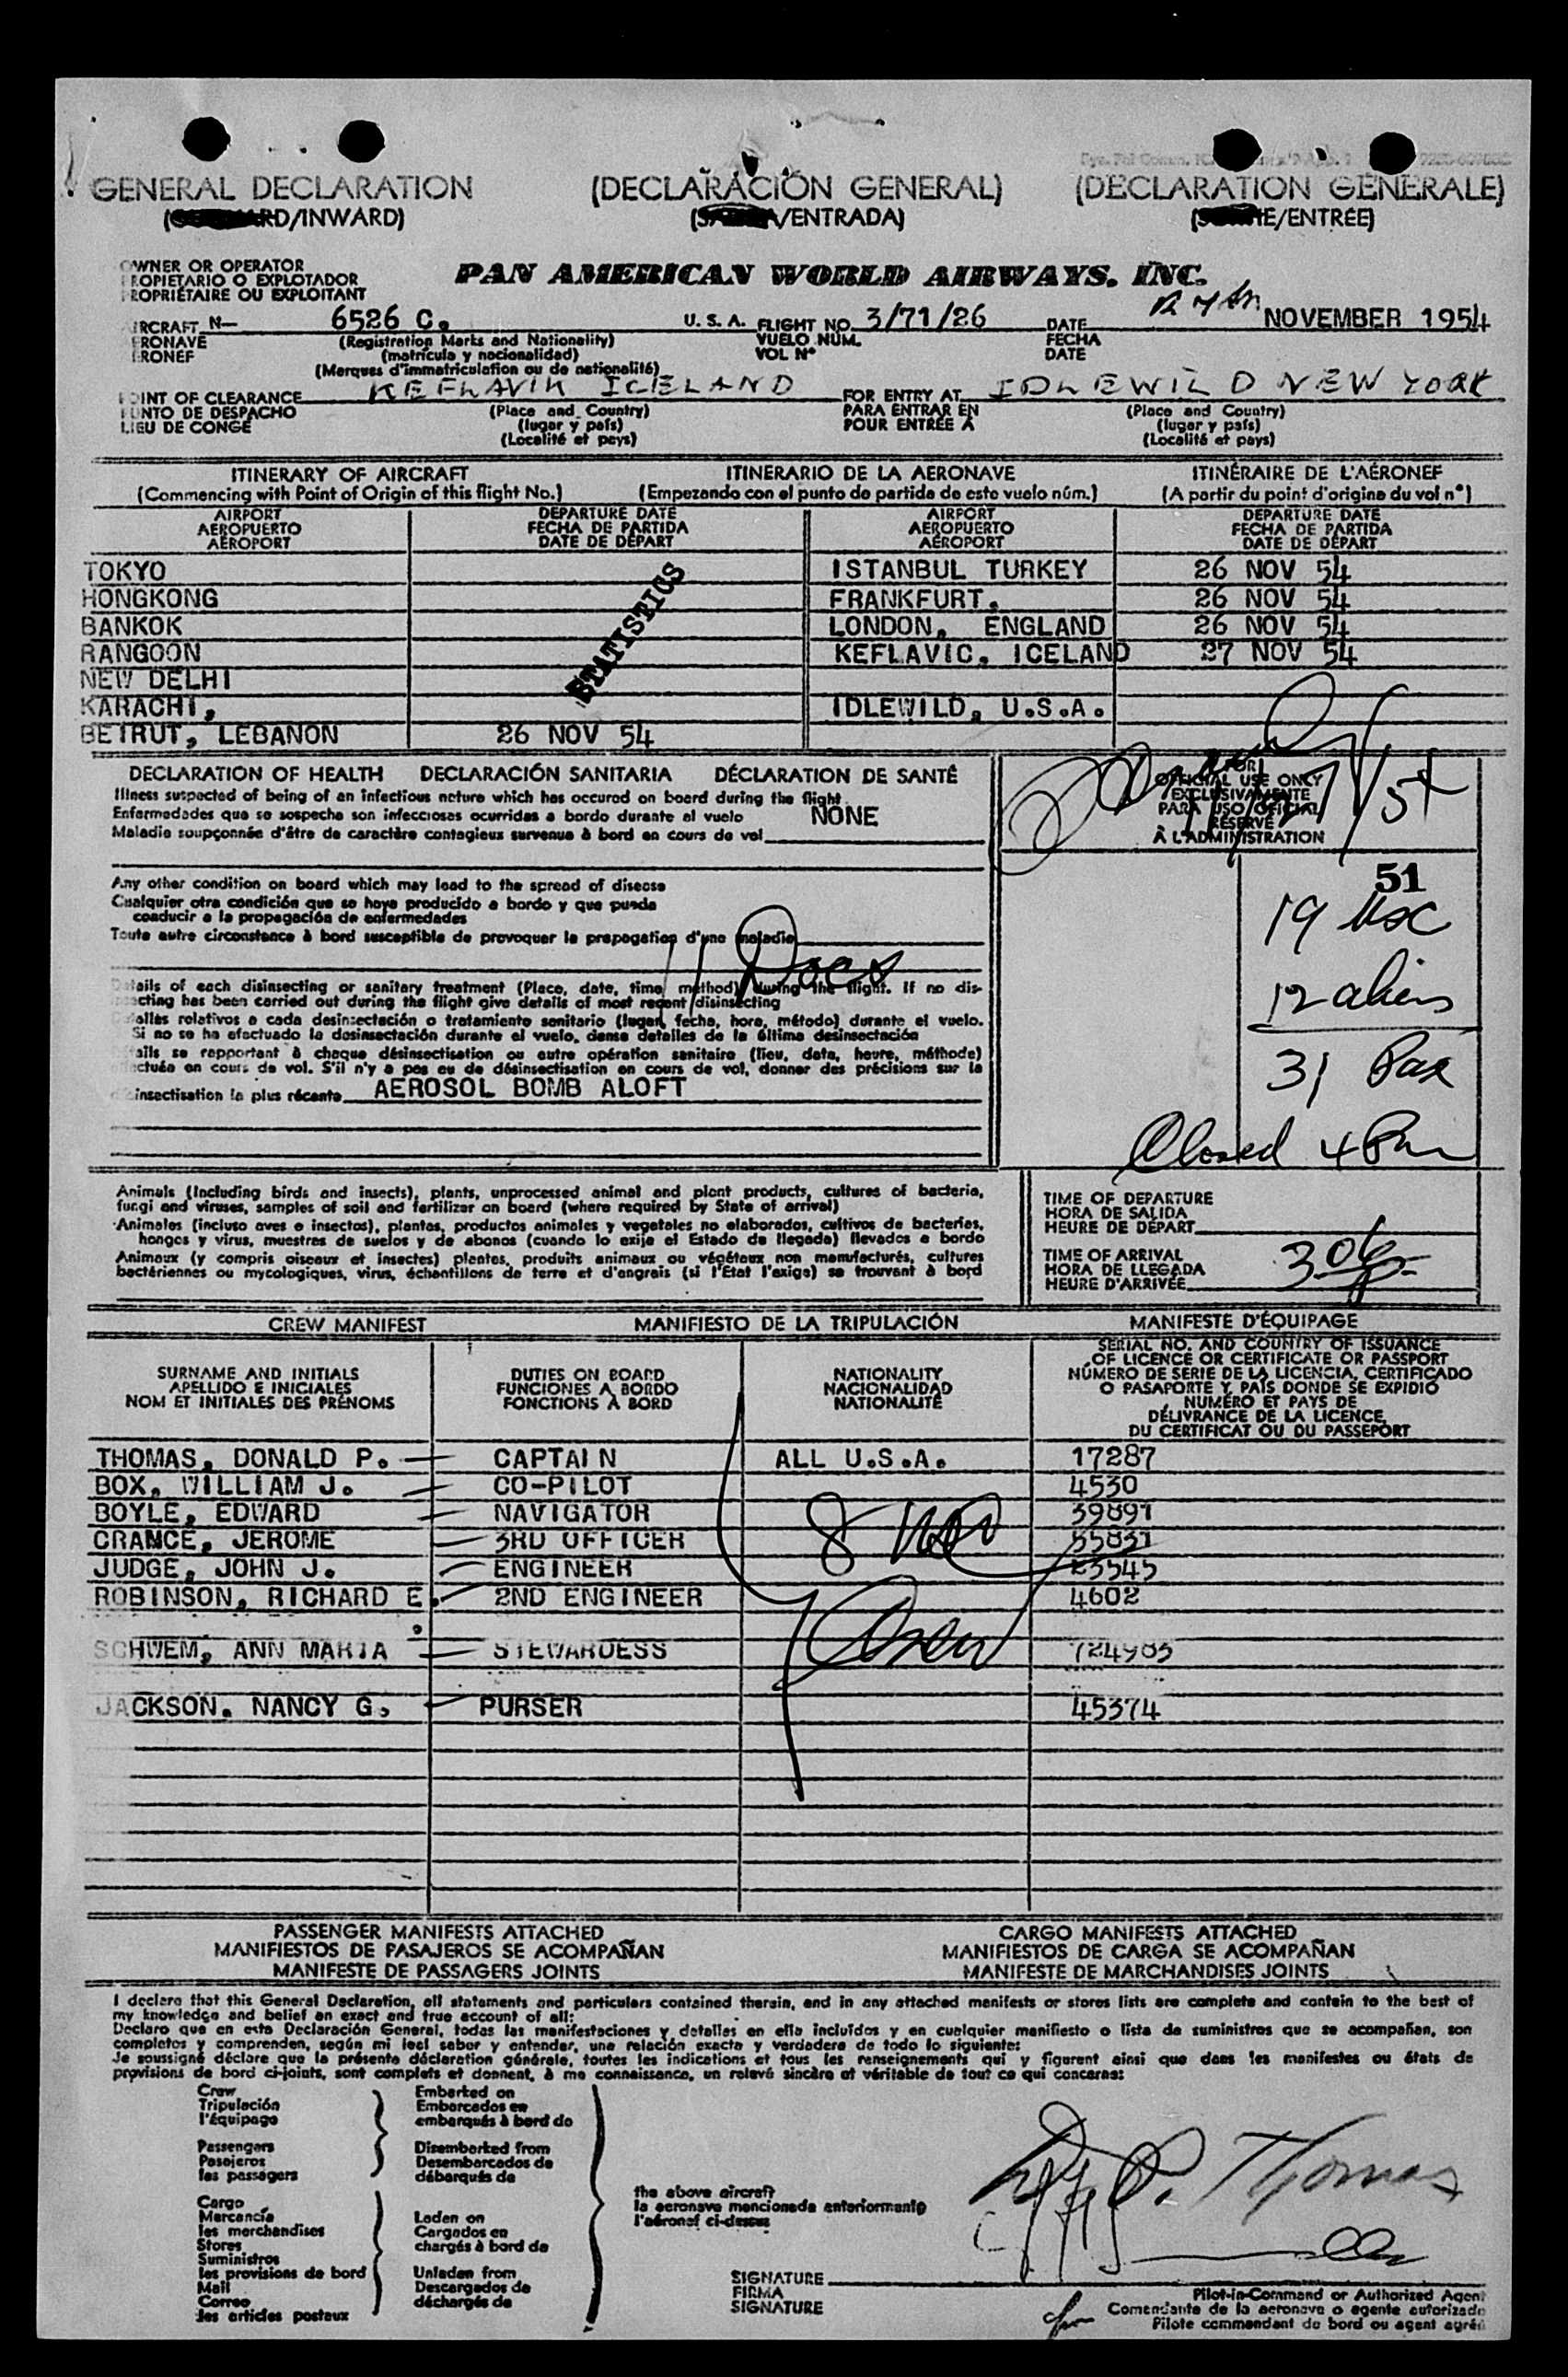 GENERAL DECLARATION (DECLARACIÓN GENERAL) (DECLARATION GÉNÉRALE)
D/INWARD) /ENTRADA) /ENTRÉE)
OWNER OR OPERATOR
PROPIETARIO O EXPLOTADOR
PROPRIÉTAIRE OU EXPLOITANT
PAN AMERICAN WORLD AIRWAYS, INC.
AIRCRAFT N— 6526 C. U. S. A. FLIGHT NO. 3/71/26 DATE 27th NOVEMBER 1954
AERONAVE (Registration Marks and Nationality) VUELO NÚM. FECHA
AERONEF (matrícula y nacionalidad) VOL Nº DATE
(Marques d'immatriculation ou de nationalité)
POINT OF CLEARANCE KEFLAVIK ICELAND FOR ENTRY AT IDLEWILD NEW YORK
PUNTO DE DESPACHO (Place and Country) PARA ENTRAR EN (Place and Country)
LIEU DE CONGÉ (lugar y país) POUR ENTRÉE À (lugar y país)
(Localité et pays) (Localité et pays)
ITINERARY OF AIRCRAFT ITINERARIO DE LA AERONAVE ITINÉRAIRE DE L'AÉRONEF
(Commencing with Point of Origin of this flight No.) (Empezando con el punto de partida de este vuelo núm.) (A partir du point d'origine du vol nº)
AIRPORT DEPARTURE DATE AIRPORT DEPARTURE DATE
AEROPUERTO FECHA DE PARTIDA AEROPUERTO FECHA DE PARTIDA
AÉROPORT DATE DE DÉPART AÉROPORT DATE DE DÉPART
TOKYO ISTANBUL TURKEY 26 NOV 54
HONGKONG FRANKFURT. 26 NOV 54
BANKOK LONDON, ENGLAND 26 NOV 54
RANGOON KEFLAVIC, ICELAND 27 NOV 54
NEW DELHI
KARACHI, IDLEWILD, U.S.A.
BEIRUT, LEBANON 26 NOV 54
STATISTICS
DECLARATION OF HEALTH DECLARACIÓN SANITARIA DÉCLARATION DE SANTÉ
Illness suspected of being of an infectious nature which has occured on board during the flight
Enfermedades que se sospecha son infecciosas ocurridas a bordo durante el vuelo NONE
Maladie soupçonnée d'être de caractère contagieux survenue à bord en cours de vol
FOR
OFFICIAL USE ONLY
EXCLUSIVAMENTE
PARA USO OFICIAL
RÉSERVÉ
À L'ADMINISTRATION
Any other condition on board which may lead to the spread of disease
Cualquier otra condición que se haya producido a bordo y que pueda
conducir a la propagación de enfermedades
Toute autre circonstance à bord susceptible de provoquer la propagation d'une maladie
51
19 USC
12 aliens
31 Pax
Closed 4 Pm
11 Docs
Details of each disinsecting or sanitary treatment (Place, date, time, method) during the flight. If no dis-
insecting has been carried out during the flight give details of most recent disinsecting
Detalles relativos a cada desinsectación o tratamiento sanitario (lugar, fecha, hora, método) durante el vuelo.
Si no se ha efectuado la desinsectación durante el vuelo, dense detalles de la última desinsectación
Détails se rapportant à chaque désinsectisation ou autre opération sanitaire (lieu, date, heure, méthode)
effectuée en cours de vol. S'il n'y a pas eu de désinsectisation en cours de vol, donner des précisions sur la
désinsectisation la plus récente AEROSOL BOMB ALOFT
Animals (Including birds and insects), plants, unprocessed animal and plant products, cultures of bacteria,
fungi and viruses, samples of soil and fertilizer on board (where required by State of arrival)
Animales (incluso aves e insectos), plantas, productos animales y vegetales no elaborados, cultivos de bacterias,
hongos y virus, muestras de suelos y de abonos (cuando lo exija el Estado de llegada) llevados a bordo
Animaux (y compris oiseaux et insectes) plantes, produits animaux ou végétaux non manufacturés, cultures
bactériennes ou mycologiques, virus, échantillons de terre et d'engrais (si l'Etat l'exige) se trouvant à bord
TIME OF DEPARTURE
HORA DE SALIDA
HEURE DE DÉPART
TIME OF ARRIVAL
HORA DE LLEGADA
HEURE D'ARRIVÉE
CREW MANIFEST MANIFIESTO DE LA TRIPULACIÓN MANIFESTE D'ÉQUIPAGE
SURNAME AND INITIALS
APELLIDO E INICIALES
NOM ET INITIALES DES PRÉNOMS
DUTIES ON BOARD
FUNCIONES A BORDO
FONCTIONS À BORD
NATIONALITY
NACIONALIDAD
NATIONALITÉ
SERIAL NO. AND COUNTRY OF ISSUANCE
OF LICENCE OR CERTIFICATE OR PASSPORT
NÚMERO DE SERIE DE LA LICENCIA, CERTIFICADO
O PASAPORTE Y PAÍS DONDE SE EXPIDIÓ
NUMÉRO ET PAYS DE
DÉLIVRANCE DE LA LICENCE,
DU CERTIFICAT OU DU PASSEPORT
THOMAS, DONALD P. CAPTAIN ALL U.S.A. 17287
BOX, WILLIAM J. CO-PILOT 4530
BOYLE, EDWARD NAVIGATOR 39891
CRANCE, JEROME 3RD OFFICER 35831
JUDGE, JOHN J. ENGINEER 23545
ROBINSON, RICHARD E. 2ND ENGINEER 4602
SCHWEM, ANN MARIA STEWARDESS 724983
JACKSON, NANCY G. PURSER 45374
8 USC
Crew
PASSENGER MANIFESTS ATTACHED CARGO MANIFESTS ATTACHED
MANIFIESTOS DE PASAJEROS SE ACOMPAÑAN MANIFIESTOS DE CARGA SE ACOMPAÑAN
MANIFESTE DE PASSAGERS JOINTS MANIFESTE DE MARCHANDISES JOINTS
I declare that this General Declaration, all statements and particulars contained therein, and in any attached manifests or stores lists are complete and contain to the best of
my knowledge and belief an exact and true account of all:
Declaro que en esta Declaración General, todas las manifestaciones y detalles en ella incluídos y en cualquier manifiesto o lista de suministros que se acompañan, son
completos y comprenden, según mi leal saber y entender, una relación exacta y verdadera de todo lo siguiente:
Je soussigné déclare que la présente déclaration générale, toutes les indications et tous les renseignements qui y figurent ainsi que dans les manifestes ou états de
provisions de bord ci-joints, sont complets et donnent, à ma connaissance, un relevé sincère et véritable de tout ce qui concerne:
Crew Embarked on
Tripulación Embarcados en
l'équipage embarqués à bord de
Passengers Disembarked from
Pasajeros Desembarcados de
les passagers débarqués de
the above aircraft
la aeronave mencionada anteriormente
l'aéronef ci-dessus
Cargo
Mercancía Laden on
les marchandises Cargados en
Stores chargés à bord de
Suministros
les provisions de bord Unladen from
Mail Descargados de
Correo déchargés de
les articles postaux
P. Thomas
SIGNATURE
FIRMA
SIGNATURE
Pilot-in-Command or Authorized Agent
Comandante de la aeronave o agente autorizado
Pilote commandant de bord ou agent agréé